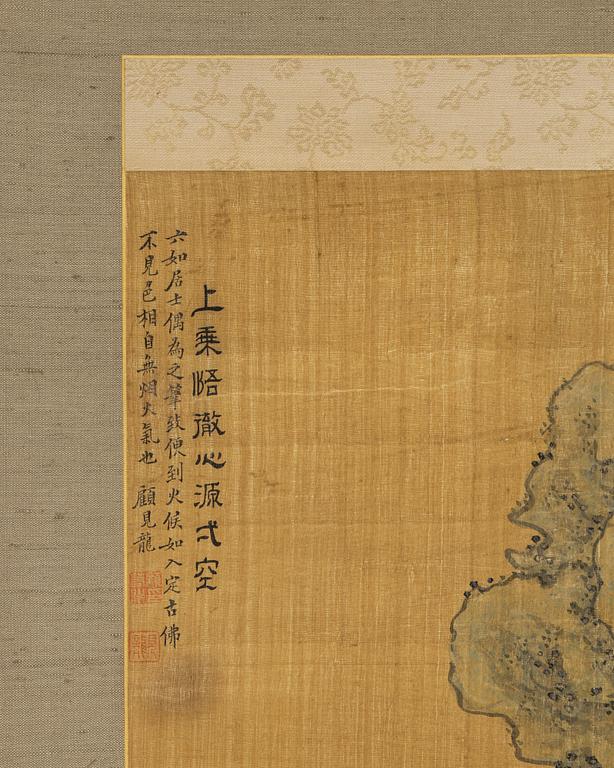 上乗悟徹心源弍空
六如居士偶為之筆致便到火候如入定古佛
不見色相自無烟火氣也 顧見龍